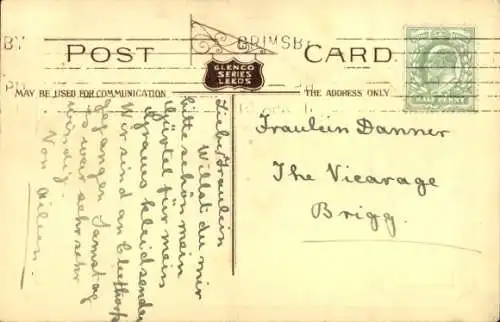 BY
GRIMSB
POST CARD.
GLENCO
SERIES
LEEDS
MAY BE USED FOR COMMUNICATION
THE ADDRESS ONLY
HALF PENNY
Liebe Fraulein
Willst du mir
bitte schön mein
Gürtel für mein
graues kleid senden
Wir sind an Cleethorp
gegangen Samstag
es war sehr sehr
windig.
Von Aileen.
Fraulein Danner
The Vicarage
Brigg.